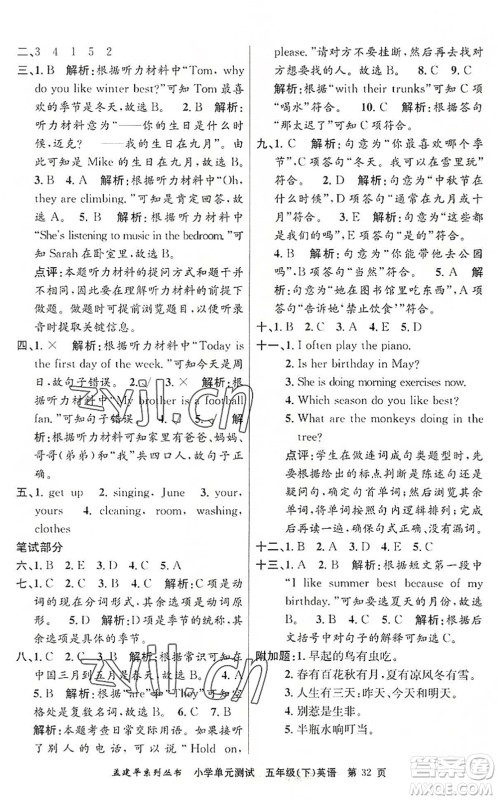 二、3 4 1 5 2
三、1. B 解析:根据听力材料中“Tom, why
do you like winter best?”可知 Tom 最喜
欢的季节是冬天,故选 B。 2. B 解析:
听力材料意为“——你的生日是什么时
候,迈克? ——我的生日在九月”,由
此可知 Mike 的生日在九月,故选 B。
3. B 4. A 解析:根据听力材料中“Oh,
they are climbing.”可知肯定回答,故
选 A。 5. B 解析:根据听力材料中
“She's listening to music in the bedroom.”可
知 Sarah 在卧室里,故选 B。
点评:本题听力材料的提问方式或回
答方式与题干有所不同,所以做题之
前要在理解听力材料的基础上做题。
做题时可以提前预读题目,在听的过
程中抓住关键信息。
四、1. × 解析:根据听力材料中“Today is
the first day of the week.”可知今天是周
日,故句子错误。
解析:根据听力材料中“My brother is a football
fan.”可知句子错误。 解
析:根据听力材料可知家里有爸爸、妈妈、
哥哥(弟弟)和我共四口人,故句子
错误。
五、1. get up 2. singing, June 3. your,
yours 4. cleaning, room, washing,
clothes
笔试部分
六、1. B 2. E 3. D 4. C 5. A
七、1. C 2. A 3. B 解析:C项是动
词的现在分词形式,其余选项是动词
原形。 4. C 5. A 解析:A项是动词
的原形,其余选项是具体的季节。
八、1. C 2. B 解析:根据常识可知在
中国三月到五月是春天,故选 B。
3. B 解析:根据“are”和“they”可知空
格处是复数名词,故选 B。 4. A 解
析:本题考查日常交际用语。
“Hold on,
please.”意为“请稍等”,故选 A。
解析:根据“with their trunks”可知 C 项
“喝水”符合。 10. C 解析:根据答句
“那太迟了”可知 C 项符合。
九、1. B 解析:句意为“你最喜欢哪个季节
呢?”B 项答句“冬天。我可以在雪里玩”
符合。 2. D 解析:句意为“中秋节
在什么时候?”D 项答句“通常在九月或十
月”符合。 3. E 解析:句意为“这些都
是我们的”,E 项答句“哇!它们真漂亮”
符合。 4. C 解析:句意为“你能带他去公
园吗?”C 项答句“当然”符合。 5. A 解
析:句意为“她在图书馆里吃东西”,A 项
答句“告诉她‘禁止饮食’”符合。
十、1. C 2. B 3. A 4. E 5. D
十一、1. I often play the piano.
2. Is her birthday in May?
3. She is doing morning exercises now.
4. Which season do you like best?
5. What are the monkeys doing in the
tree?
点评:学生在做连词成句题时,首先
要根据给出的标点判断是陈述句还
是问句,然后根据所给单词进行逻辑
排列,最后通读句子,检查句子是否符
合英语语法规则。
十二、1. B 2. D 3. E 4. A 5. C
十三、1. B 解析:根据短文第一段中
“I like summer best because of my
birthday.”可知作者最喜欢的季节是
夏天,故选 B。 2. A 3. A 4. C
5. B 解析:根据前文内容可知,最后
括号中对应的月份是八月,故选 B。
附加题:1. 早起的鸟有虫吃。
2. 春有百花秋有月,夏有凉风冬有雪。
3. 人生有三天:昨天、今天和明天。
4. 坚持就是胜利。
5. 半瓶水响叮当。
孟建平系列丛书 小学单元测试 五年级(下)英语 第 32 页
zyji.cn
zyji.cn